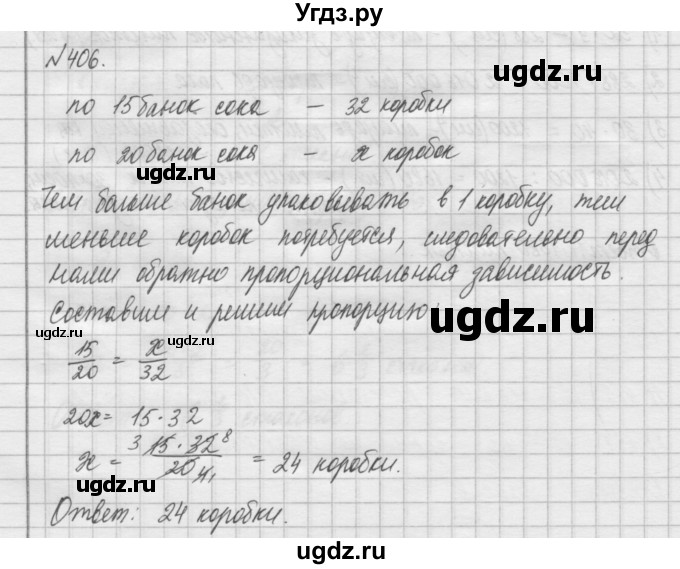 Угдз.ру
№406.
по 15 банок сока — 32 коробки
по 20 банок сока — x коробок
Чем больше банок упаковывать в 1 коробку, тем
меньше коробок потребуется, следовательно перед
нами обратно пропорциональная зависимость.
Составим и решим пропорцию:
15/20 = x/32
20x = 15 · 32
x = 3 15 · 32 8 / 20 4 1 = 24 коробки.
Ответ: 24 коробки.
ugdz.ru
ugdz.ru
ugdz.ru
ugdz.ru
ugdz.ru
ugdz.ru
ugdz.ru
ugdz.ru
ugdz.ru
ugdz.ru
ugdz.ru